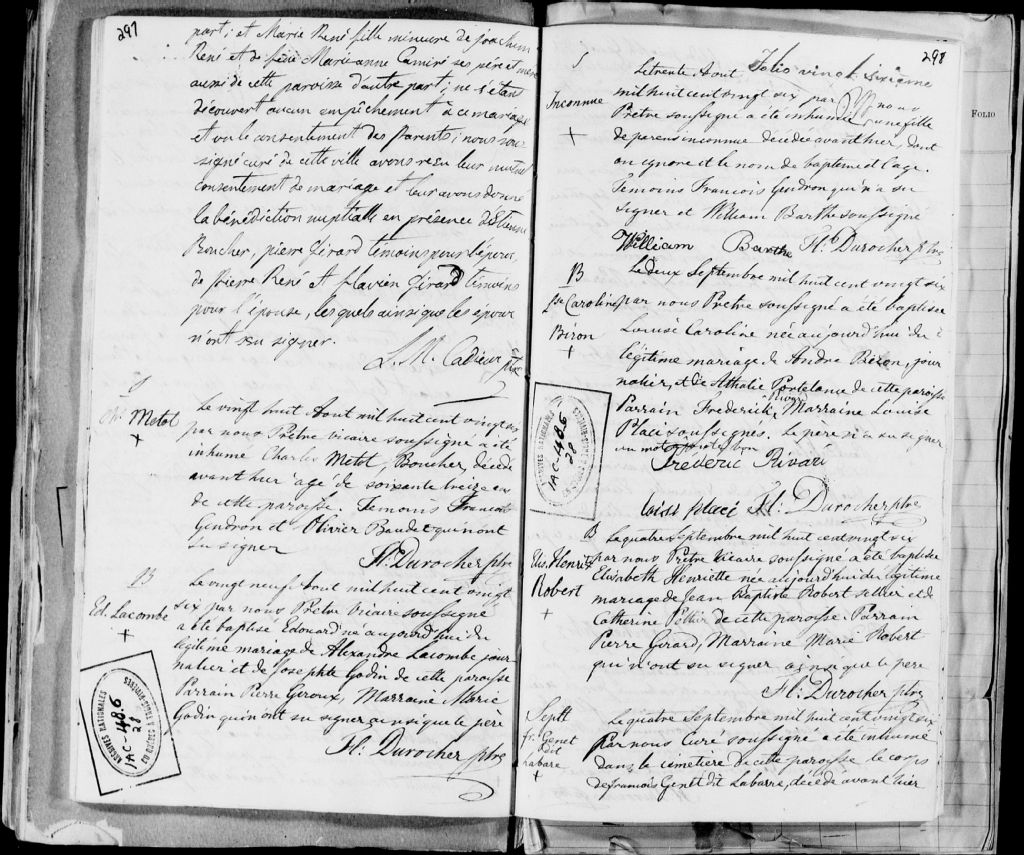 297
part; et Marie René fille mineure de joachim
René et de feüe Marieanne Camiré ses père et mere
aussi de cette paroisse d'autre part; ne s'étant
découvert aucun empêchement à ce mariage
et vu le consentement des parents; nous sous
signé curé de cette ville avons reçu leur mutuel
consentement de mariage et leur avons donné
la bénédiction nuptialle en présence d'Etienne
Boucher, pierre Girard témoins pour l'époux,
de pierre René et flavien Girard témoins
pour l'épouse, lesquels ainsi que les epoux
n'ont su signer.
L. M. Cadieux ptre
S
Ch. Metot
+
Le vingt huit Aout mil huit cent vingt six
par nous Prêtre vicaire soussigné a été
inhumé Charles Metot, Boucher, décédé
avant hier âgé de soixante treize ans
de cette paroisse. Temoins François
Gendron et Olivier Baudet qui n'ont
su signer
Fl. Durocher ptre
B
Ed. Lacombe
+
Le vingt neuf Aout mil huit cent vingt
six par nous Prêtre Vicaire soussigné
a été baptisé Edouard né aujourd'hui du
légitime mariage de Alexandre Lacombe jour-
nalier et de Josephte Godin de cette paroisse
Parrain Pierre Geroux, Marraine Marie
Godin qui n'ont su signer ainsi que le père
Fl. Durocher ptre
ARCHIVES NATIONALES
DU QUEBEC A TROIS-RIVIERES
1AC-486
28
298
Folio vingt sixieme
S
Inconnue
+
Le trente Aout
mil huit cent vingt six par nous
Prêtre soussigné a été inhumé une fille
de parens inconnue décédée avant hier, dont
on ignore et le nom de baptême et l'age.
Temoins Francois Gendron qui n'a su
signer et William Barthe soussigné
William Barthe Fl. Durocher ptre
B
Caroline
Biron
+
Le deux Septembre mil huit cent vingt six
par nous Prêtre soussigné a été baptisée
Louise Caroline née aujourd'hui du
légitime mariage de Andre Biron, jour
nalier, et de Athalie Portelance de cette paroisse
Parrain Frederick Rivard Marraine Louise
Placé soussignés. Le père n'a su signer
un mot
Fréderic Rivard
Fl. Durocher ptre
ARCHIVES NATIONALES
DU QUEBEC A TROIS-RIVIERES
1AC-486
28
B
Elis. Henriette
Robert
+
Le quatre Septembre mil huit cent vingt six
par nous Prêtre Vicaire soussigné a été baptisée
Elisabeth Henriette née aujourd'hui du légitime
mariage de Jean Baptiste Robert sellier et de
Catherine Peltier de cette paroisse. Parrain
Pierre Girard, Marraine Marie Robert
qui n'ont su signer ainsi que le père
Fl. Durocher ptre
Sept
fr. Genet
dit
Labare
+
Le quatre Septembre mil huit cent vingt six
Par nous Curé soussigné a été inhumé
dans le cimetière de cette paroisse le corps
de francois Genet dit Labarre, décédé avant hier
FOLIO